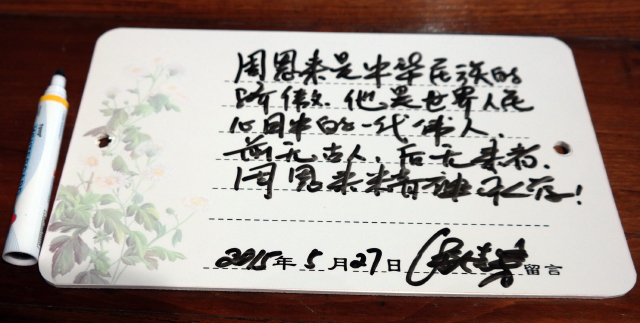 周恩来是中华民族的
骄傲。他是世界人民
心目中的一代伟人,
前无古人,后无来者.
周恩来精神永存!
2015年5月27日 留言